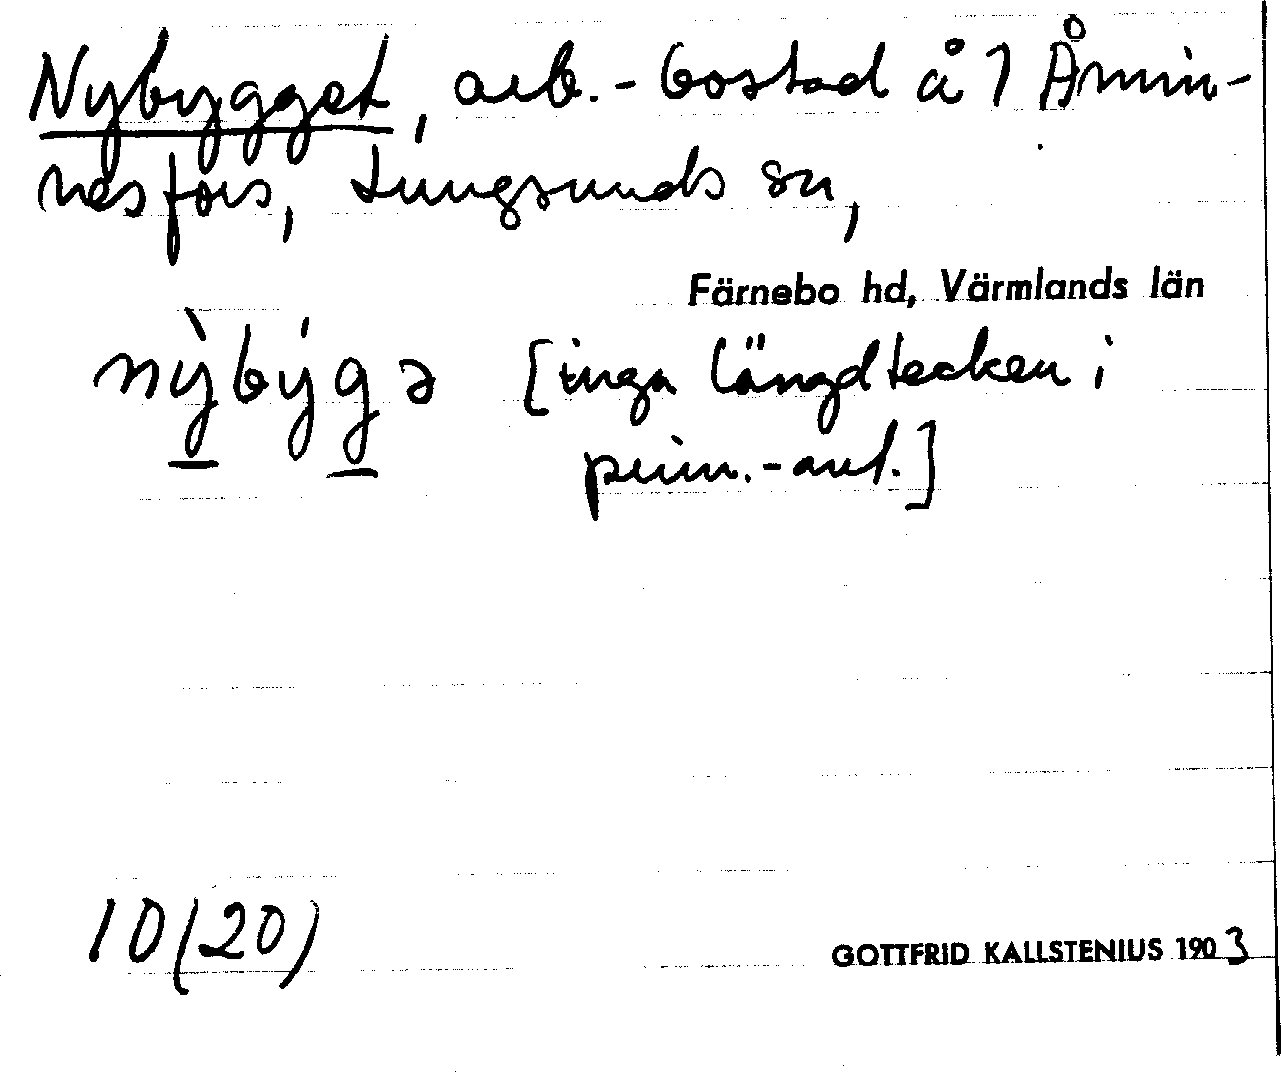 Nybygget, arb.-bostad å 1 Åmin-
nesfors, Lungsunds sn,
Färnebo hd, Värmlands län
nỳbýgə [inga längdtecken i
prim.-ant.]
10(20)
GOTTFRID KALLSTENIUS 1903